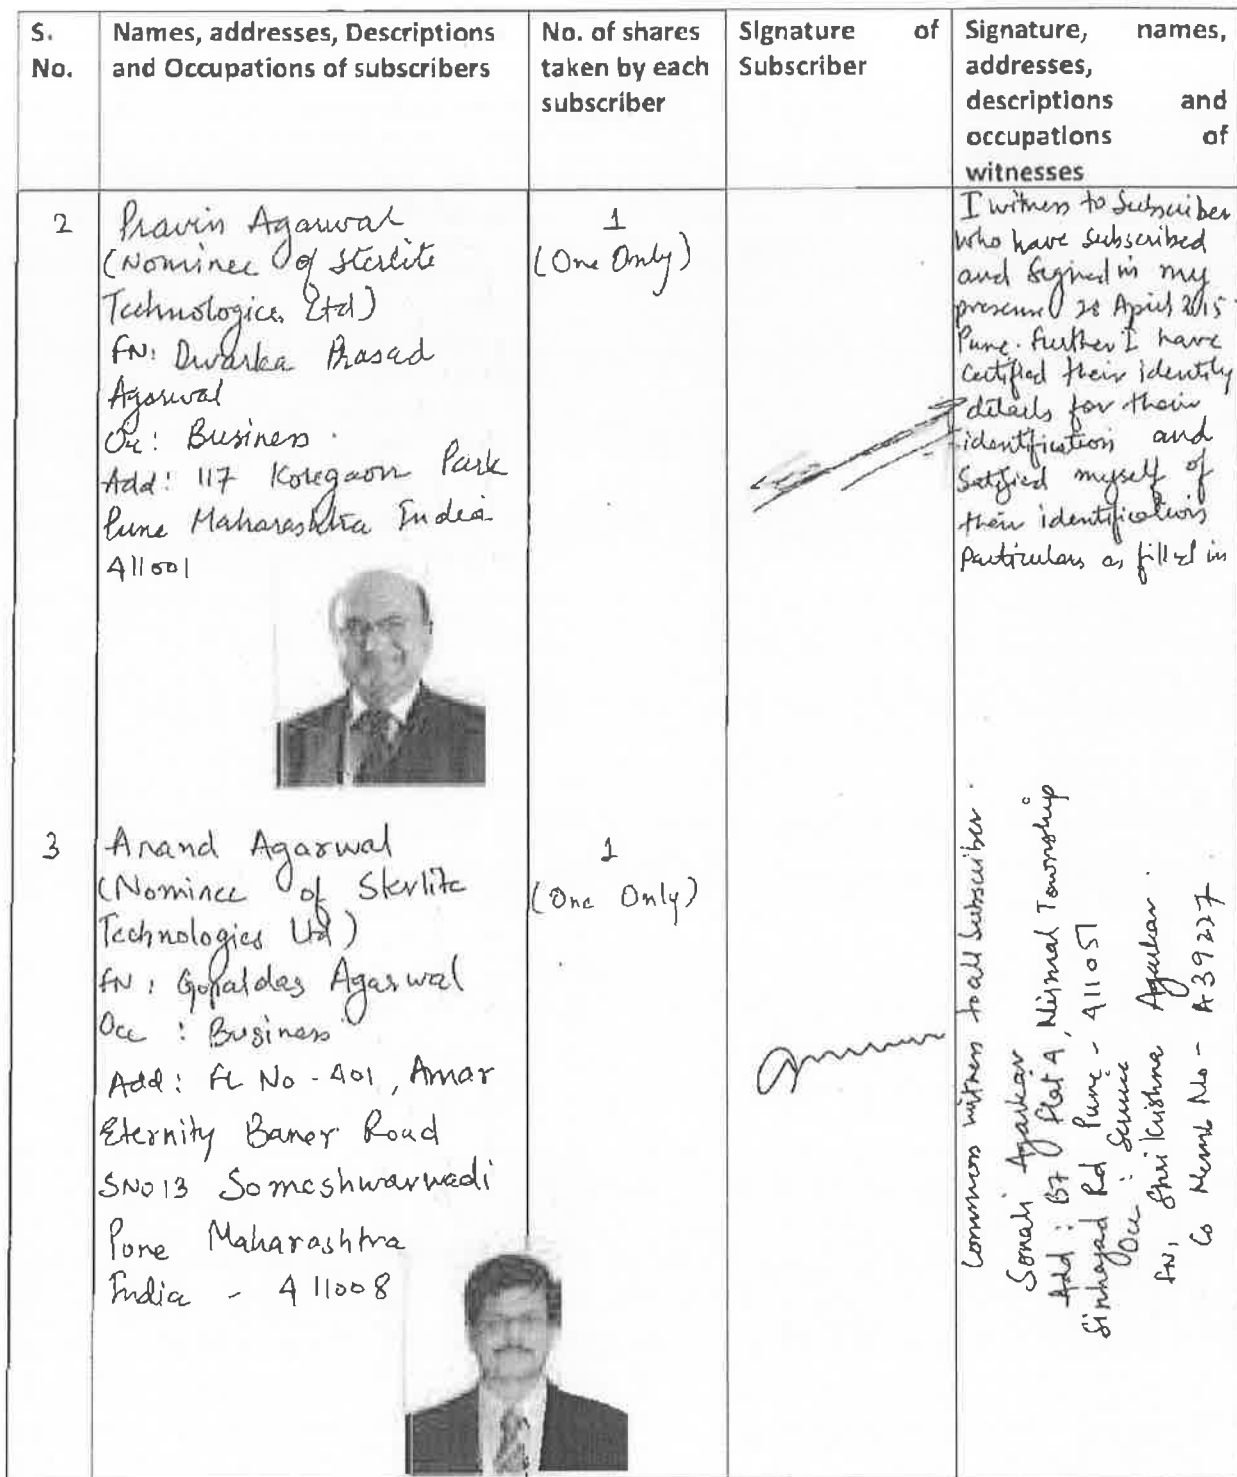 S. No.
Names, addresses, Descriptions
and Occupations of subscribers
No. of shares
taken by each
subscriber
Signature of
Subscriber
Signature, names,
addresses,
descriptions and
occupations of
witnesses
2
Pravin Agarwal
(Nominee of Sterlite
Technologies Ltd)
FN: Dwarka Prasad
Agarwal
Occ: Business
Add: 117 Koregaon Park
Pune Maharashtra India
411001
1
(One Only)
I witness to Subscriber
who have subscribed
and signed in my
presence 28 April 2015
Pune. Further I have
certified their identity
details for their
identification and
satisfied myself of
their identification
particulars as filled in
3
Anand Agarwal
(Nominee of Sterlite
Technologies Ltd)
FN: Gopaldas Agarwal
Occ : Business
Add: FL No - 401, Amar
Eternity Baner Road
SNO 13 Someshwarwadi
Pune Maharashtra
India - 411008
1
(One Only)
Common witness to all Subscriber.
Sonali Agarkar
Add : B7 Flat 4, Nirmal Township
Sinhagad Rd Pune - 411051
Occ : Service
FN: Shrikrishna Agarkar
Cs Memb No - A39227